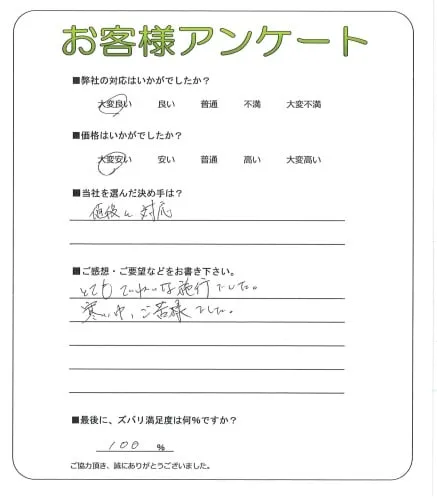 お客様アンケート
■弊社の対応はいかがでしたか?
大変良い 良い 普通 不満 大変不満
■価格はいかがでしたか?
大変安い 安い 普通 高い 大変高い
■当社を選んだ決め手は?
値段と対応
■ご感想・ご要望などをお書き下さい。
とてもていねいな施行でした。
寒い中、ご苦様でした。
■最後に、ズバリ満足度は何%ですか?
100 %
ご協力頂き、誠にありがとうございました。